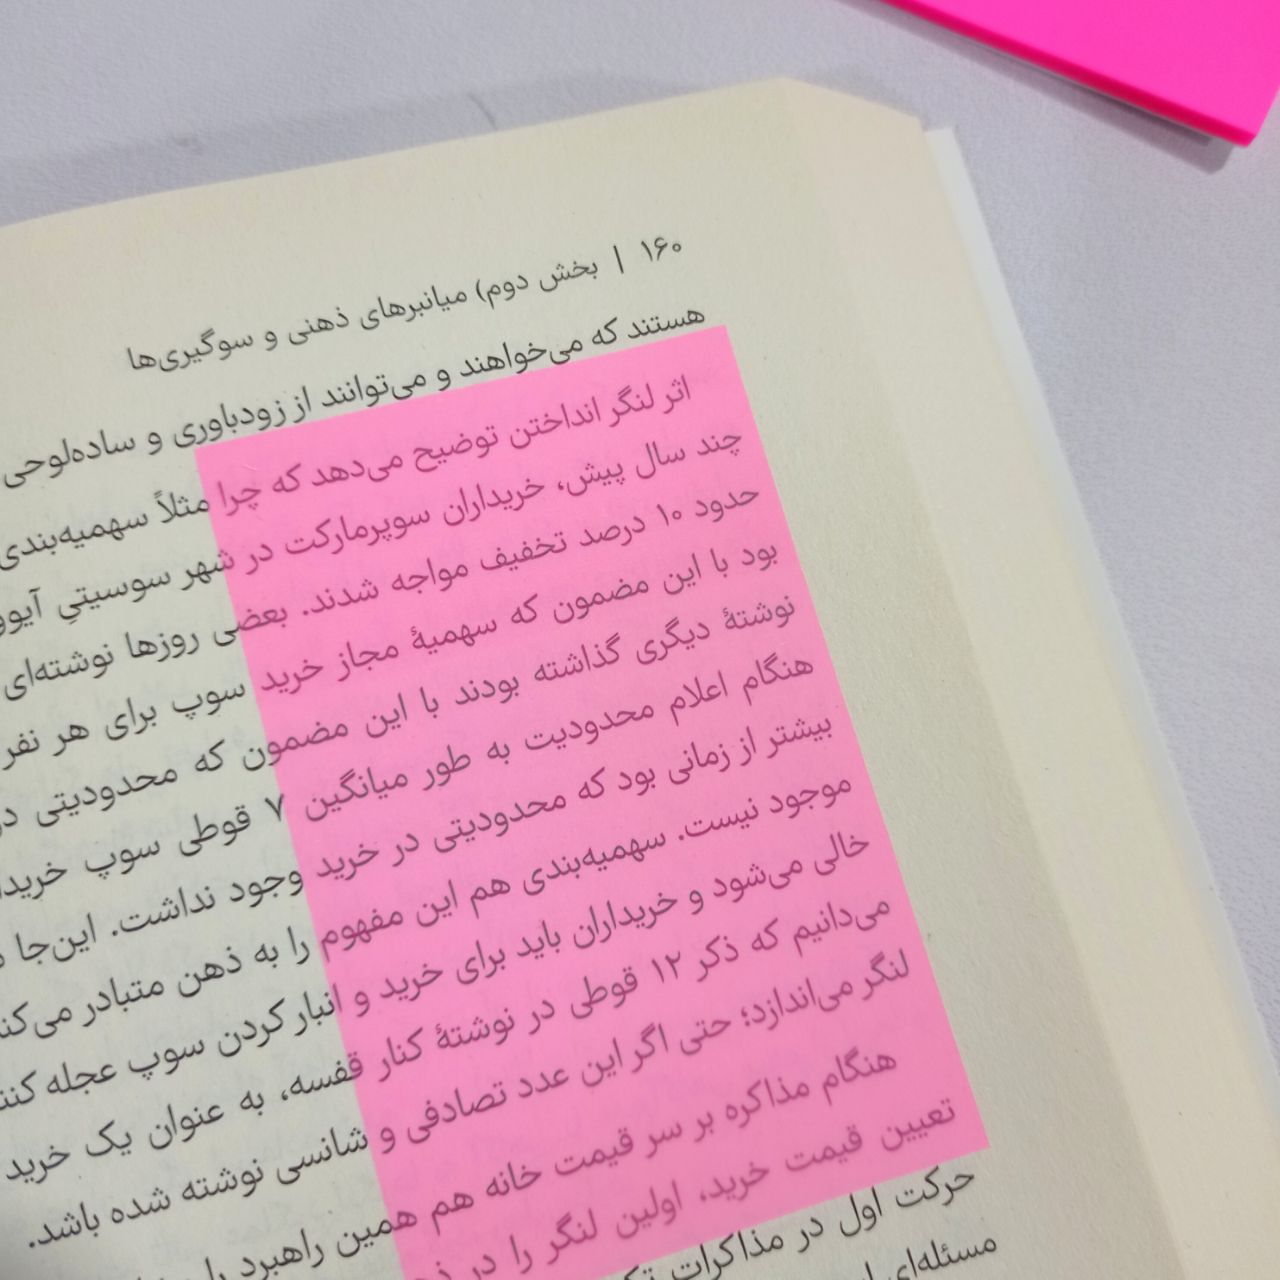 ۱۶۰ | بخش دوم) میانبرهای ذهنی و سوگیری‌ها
هستند که می‌خواهند و می‌توانند از زودباوری و ساده‌لوحی
اثر لنگر انداختن توضیح می‌دهد که چرا مثلاً سهمیه‌بندی
چند سال پیش، خریداران سوپرمارکت در شهر سوسیتیِ
حدود ۱۰ درصد تخفیف مواجه شدند. بعضی روزها نوشته‌ای
بود با این مضمون که سهمیهٔ مجاز خرید سوپ برای هر نفر
نوشتهٔ دیگری گذاشته بودند با این مضمون که محدودیتی
هنگام اعلام محدودیت به طور میانگین ۷ قوطی سوپ
بیشتر از زمانی بود که محدودیتی در خرید وجود نداشت. این‌جا
موجود نیست. سهمیه‌بندی هم این مفهوم را به ذهن متبادر
خالی می‌شود و خریداران باید برای خرید و انبار کردن سوپ عجله
می‌دانیم که ذکر ۱۲ قوطی در نوشتهٔ کنار قفسه، به عنوان یک خرید
لنگر می‌اندازد؛ حتی اگر این عدد تصادفی و شانسی نوشته شده باشد.
هنگام مذاکره بر سر قیمت خانه هم همین راهبرد
تعیین قیمت خرید، اولین لنگر را در
حرکت اول در مذاکرات